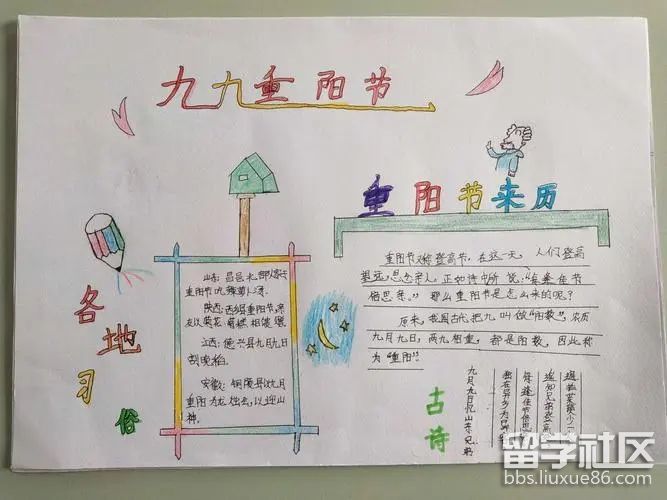 九九重阳节
重阳节来历
重阳节又称登高节,在这一天,人们登高
望远,思念亲人,正如诗中所说:"每逢佳节
倍思亲。"那么重阳节是怎么来的呢?
原来,我国古代把九叫做"阳数",农历
九月九日,两九相重,都是阳数,因此称
为"重阳"
各地习俗
山东:昌邑北部
重阳节吃辣萝卜汤
陕西:西乡县重阳节,亲
友以菊花
江西:德兴县九月九日
割晚稻
安徽:铜陵县以九月
重阳为龙烛会,以迎山
神。
古诗
九月九日忆山东兄弟
独在异乡为异
每逢佳节倍思
遥知兄弟登高
遍插茱萸少一
留学社区
bbs.liuxue86.com